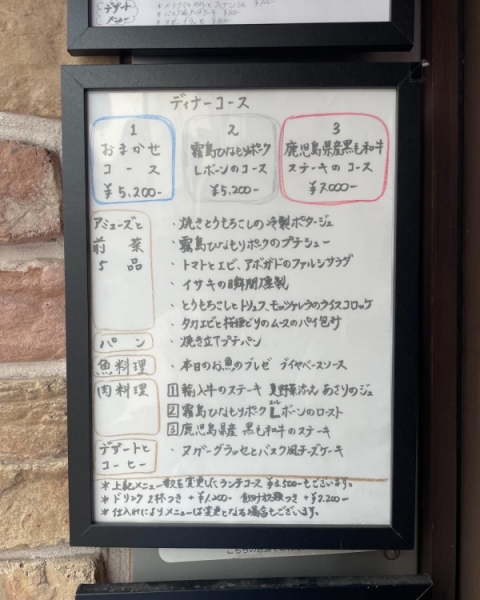 デザート
メニュー
ディナーコース
1
おまかせ
コース
¥5,200-
2
霧島ひなもりポーク
Lボーンのコース
¥5,200-
3
鹿児島県産黒毛和牛
ステーキのコース
¥7000-
アミューズと
前菜
5品
・焼きとうもろこしの冷製ポタージュ
・霧島ひなもりポークのプチシュー
・トマトとエビ、アボガドのファルシサラダ
・イサキの瞬間燻製
・とうもろこしとトリュフ、モッツァレラのライスコロッケ
・タカエビと桜姫どりのムースのパイ包み
パン
・焼き立てプチパン
魚料理
・本日のお魚のブレゼ ブイヤベースソース
肉料理
1 輸入牛のステーキ 夏野菜添え あさりのジュ
2 霧島ひなもりポーク Lボーンのロースト
3 鹿児島県産 黒毛和牛のステーキ
デザートと
コーヒー
・ヌガーグラッセとバスク風チーズケーキ
*上記メニュー 数を変更してランチコース ¥3,500-もございます。
*ドリンク2杯つき +¥1,200- 飲み放題つき +¥2,200-
*仕入れによりメニューは変更となる場合もございます。